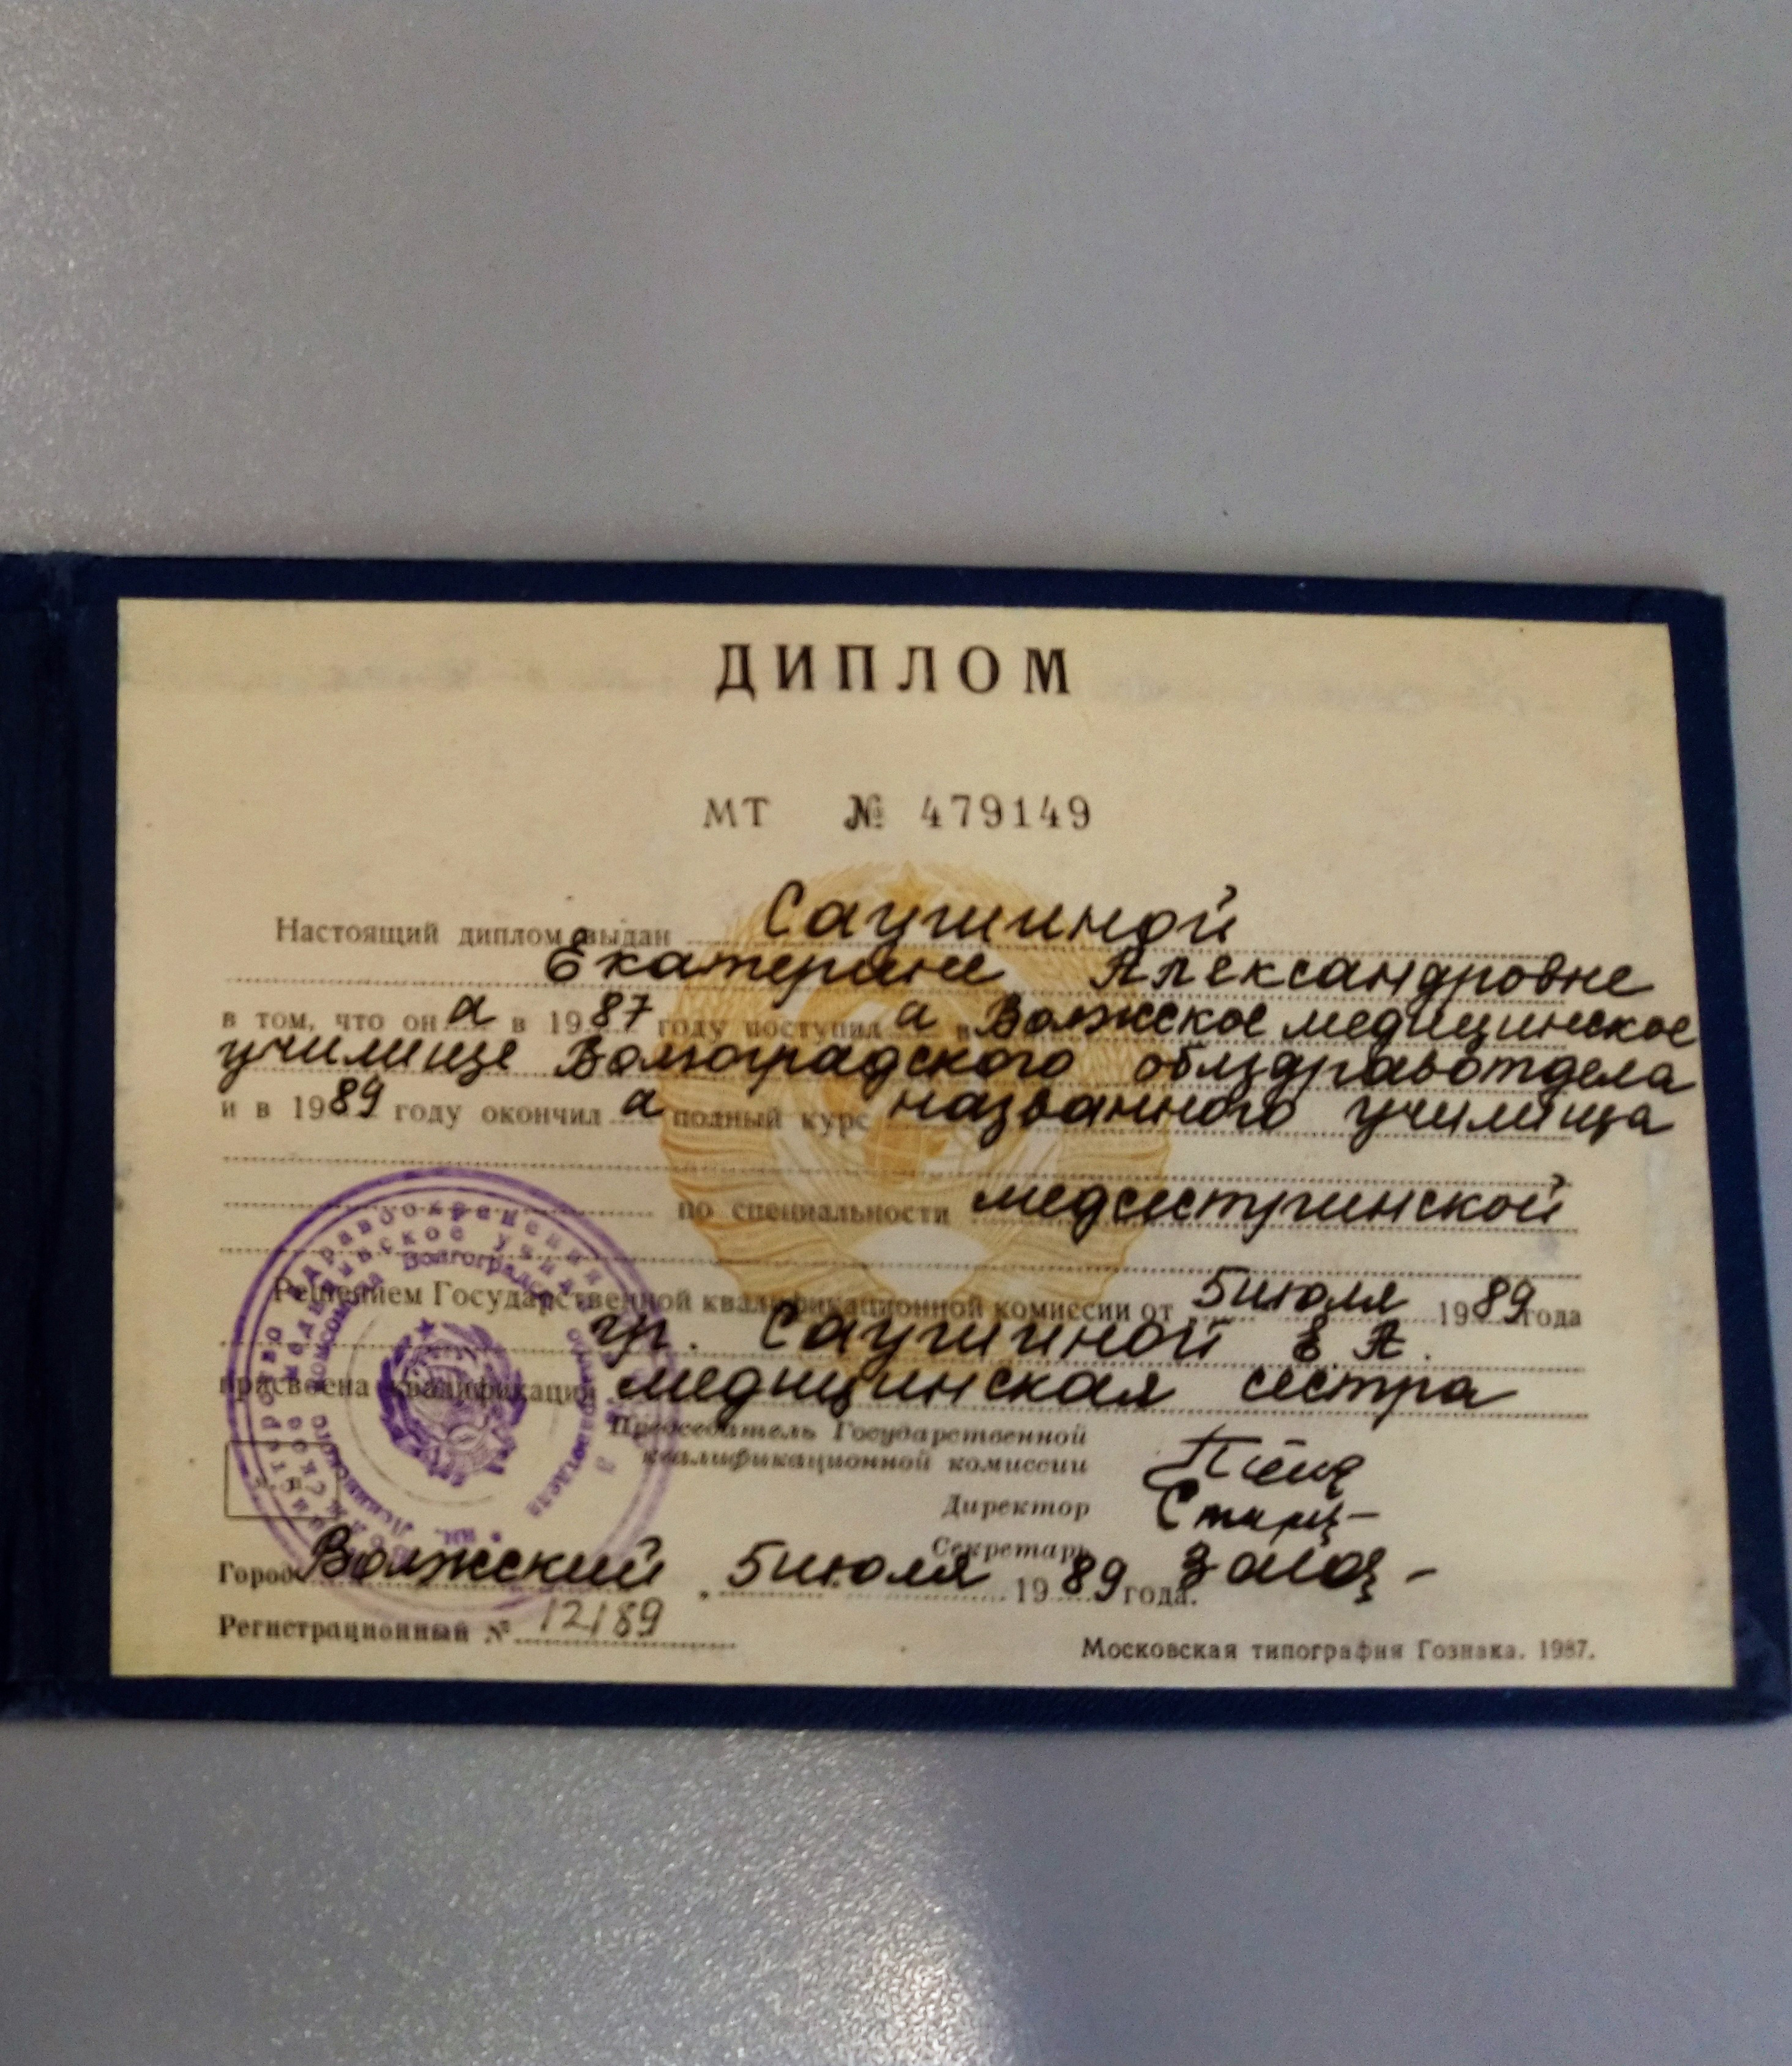 ДИПЛОМ
МТ № 479149
Настоящий диплом выдан Саушиной
Екатерине Александровне
в том, что он а в 1987 году поступил а в Волжское медицинское
училище Волгоградского облздравотдела
и в 1989 году окончил а полный курс названного училища
по специальности медсестринской
Решением Государственной квалификационной комиссии от 5 июля 1989 года
гр. Саушиной Е. А.
присвоена квалификация медицинская сестра
Председатель Государственной
квалификационной комиссии
Директор
Секретарь
Город Волжский 5 июля 1989 года.
Регистрационный № 12189
Московская типография Гознака. 1987.
здравоохранения
Волгоградского